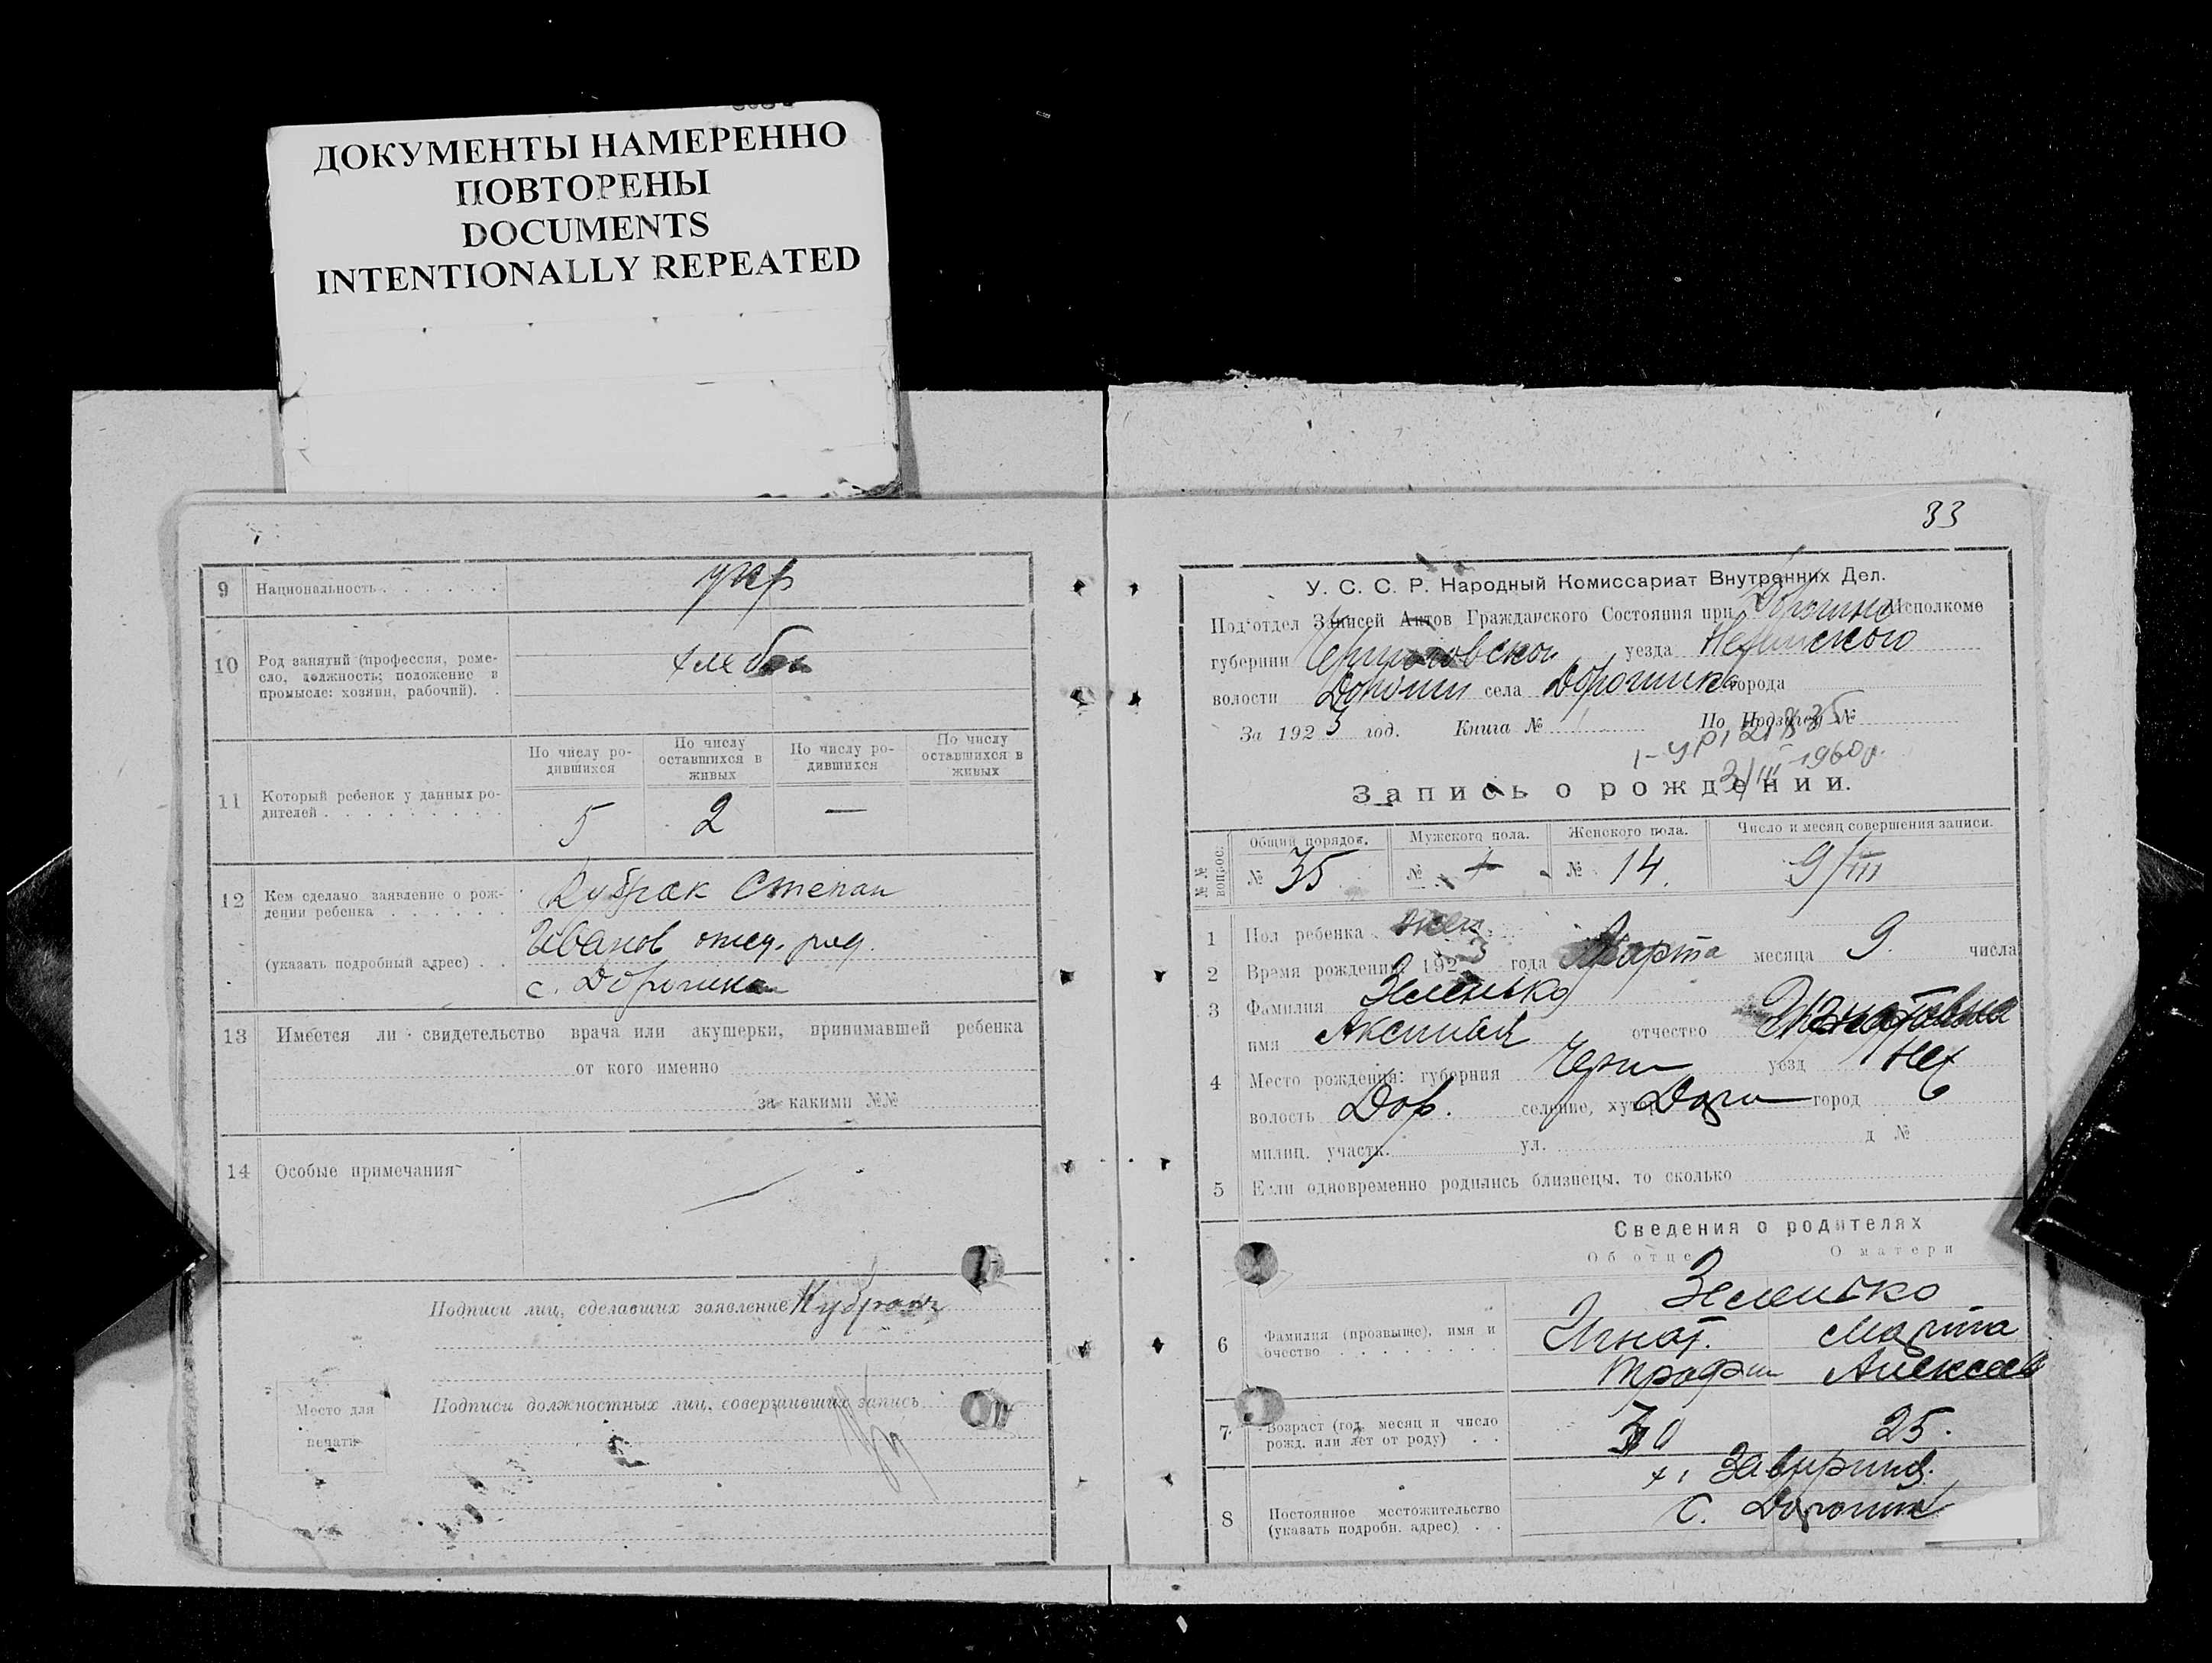 ДОКУМЕНТЫ НАМЕРЕННО
ПОВТОРЕНЫ
DOCUMENTS
INTENTIONALLY REPEATED
9 Национальность укр
10 Род занятий (профессия, реме-
сло, должность; положение в
промысле: хозяин, рабочий).
хлебор
По числу ро-
дившихся
По числу
оставшихся в
живых
По числу ро-
дившихся
По числу
оставшихся в
живых
11 Который ребенок у данных ро-
дителей
5 2 —
12 Кем сделано заявление о рож-
дении ребенка
(указать подробный адрес)
Кубрак Степан
Иванов
с. Дорогинка
13 Имеется ли свидетельство врача или акушерки, принимавшей ребенка
от кого именно
за какими №№
14 Особые примечания —
Подписи лиц, сделавших заявление Кубрак
Место для
печати
Подписи должностных лиц, совершивших запись
33
У. С. С. Р. Народный Комиссариат Внутренних Дел.
Под'отдел Записей Актов Гражданского Состояния при Дорогинс Исполкоме
губернии Черниговской уезда Нежинского
волости Дорогин села Дорогинка города
За 1923 год. Книга № По №
3/III 1960 г.
Запись о рождении.
№№ вопрос.
Общий порядов. Мужского пола. Женского пола. Число и месяц совершения записи.
№ 35 № № 14. 9/III
1 Пол ребенка жен.
2 Время рождения 1923 года Марта месяца 9 числа
3 Фамилия Зеленько
имя Аксиния отчество Игнатовна
4 Место рождения: губерния Черн уезд Неж
волость Дор. селение, хутор Дорог город
милиц. участк. ул. д №
5 Если одновременно родились близнецы, то сколько
Сведения о родителях
Об отце О матери
6 Фамилия (прозвыще), имя и
очество
Зеленько
Игнат. Марта
Трофим Алексеев
7 Возраст (год, месяц и число
рожд. или лет от роду)
30 25.
8 Постоянное местожительство
(указать подробн. адрес)
с. Дорогинк